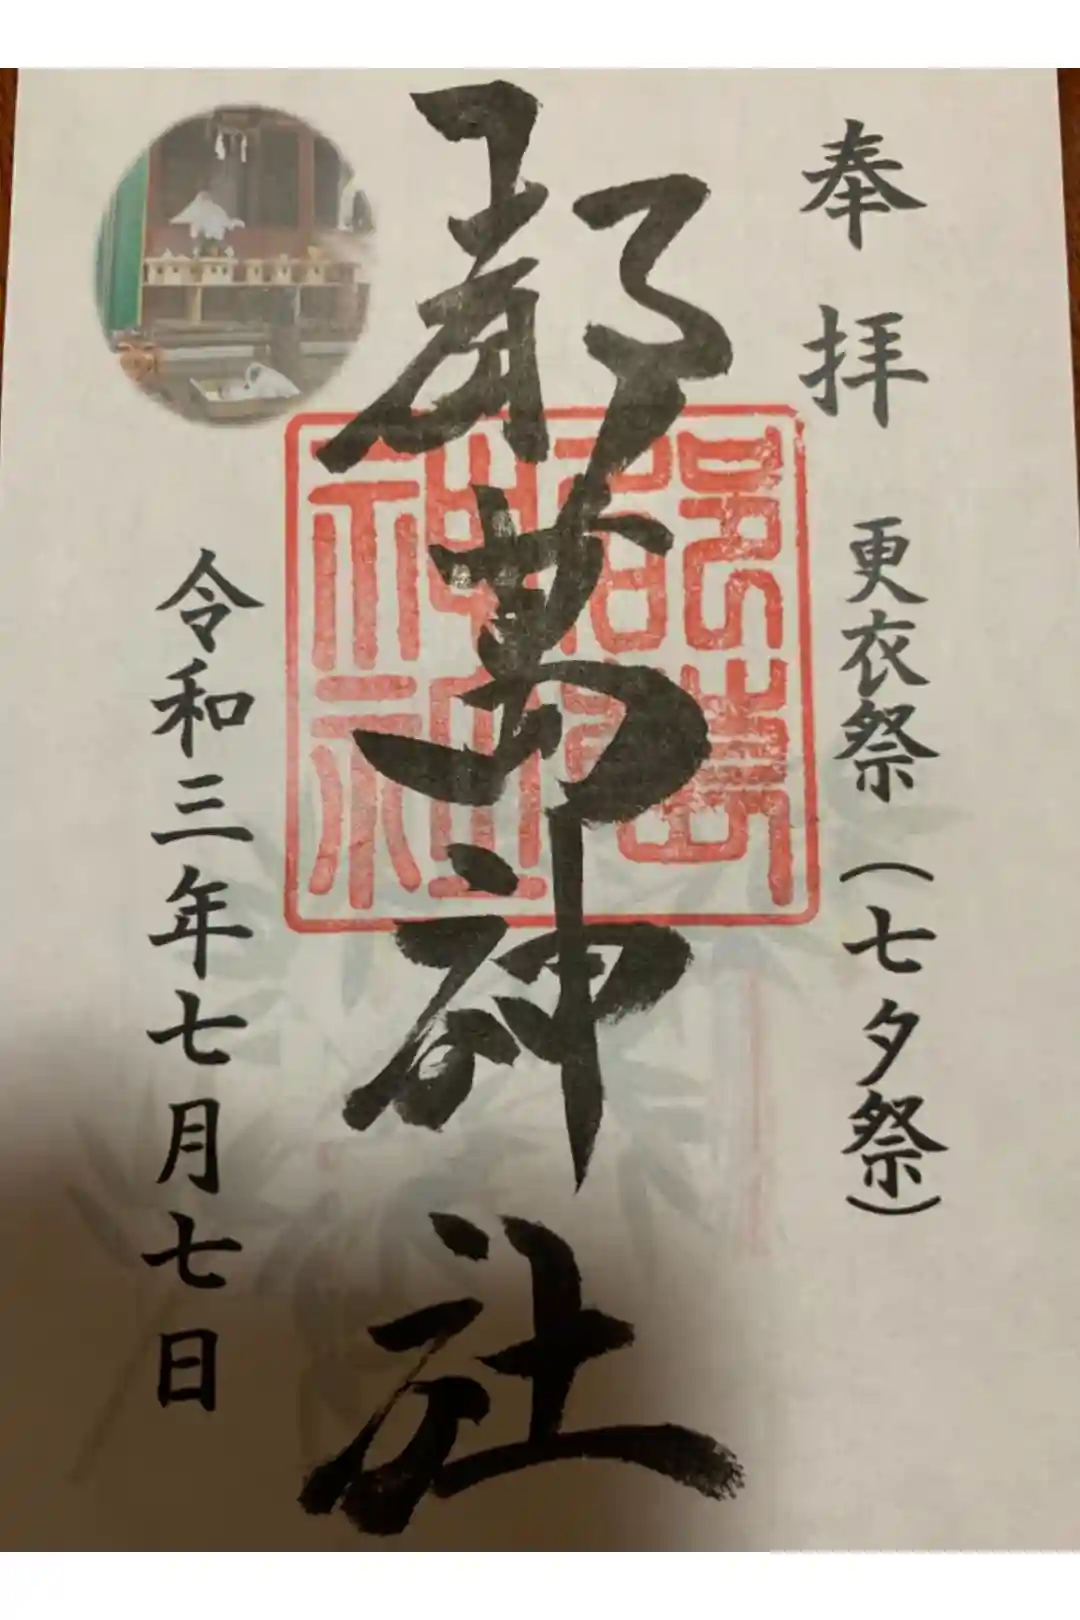 奉拝
更衣祭（七夕祭）
都萬神社
令和三年七月七日